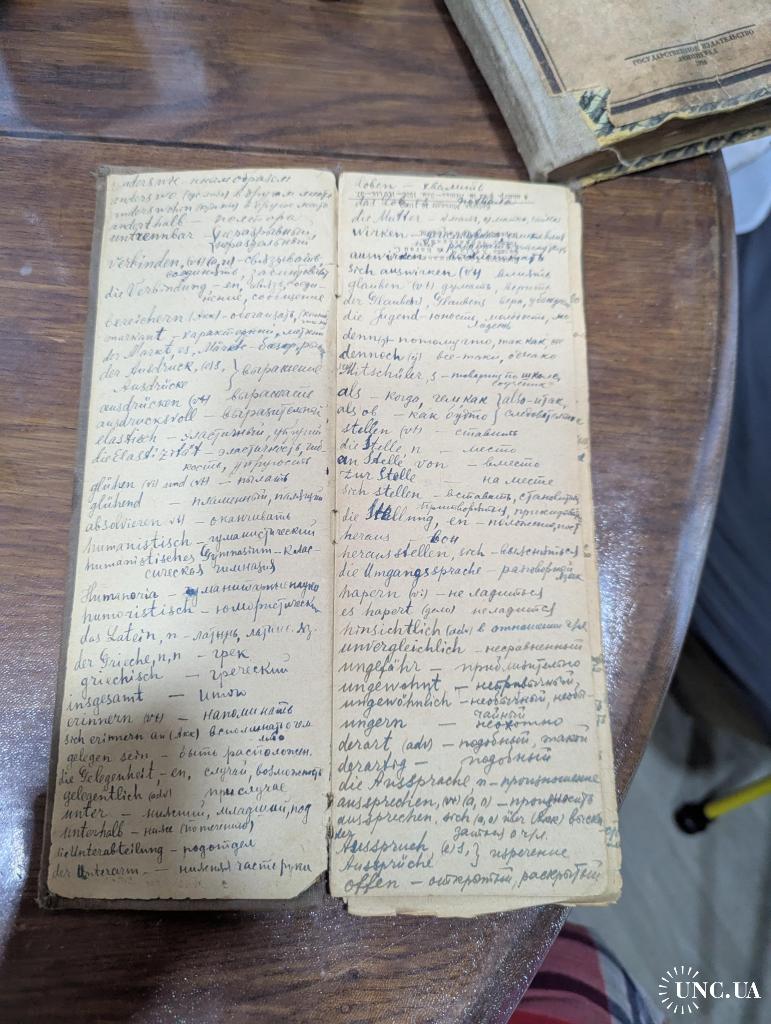 ГОСУДАРСТВЕННОЕ ИЗДАТЕЛЬСТВО
ЛЕНИНГРАД
anderswie – иным образом
anderswo в другом месте
anderthalb – полтора
untrennbar – неразрывный,
verbinden, (vt) (a, u) – связывать,
соединять,
die Verbindung – en, связь, соеди-
нение, сообщение
bereichern (Akk) – обогащать,
markant – характерный, меткий
der Markt, es, Märkte – базар,
der Ausdruck, (e)s, } выражение
Ausdrücke
ausdrücken (vt) выражать
ausdrucksvoll – выразительный,
elastisch – эластичный, упругий
die Elastizität – эластичность, гиб-
кость, упругость
glühen (vi) und (vt) – пылать
glühend – пламенный, палящий
absolvieren (vt) – оканчивать
humanistisch – гуманистический
humanistisches Gymnasium – клас-
сическая гимназия
Humaniora – гуманитарные науки
humoristisch – юмористическ
das Latein, n – латынь, латинс. яз.
der Grieche, n, n – грек
griechisch – греческий
insgesamt – итого
erinnern (vt) – напоминать
sich erinnern an (Akk) вспоминать о чем
либо
gelegen sein – быть расположен.
die Gelegenheit – en, случай, возможность
gelegentlich (adv) при случае
unter – нижний, младший, под
unterhalb – ниже (по течению)
die Unterabteilung – подотдел
der Unterarm – нижняя часть руки
loben – хвалить
die Mutter –
wirken –
auswirken
sich auswirken (vt) влиять
glauben (vt) думать, верить
der Glauben, Glaubens вера,
die Jugend – юность, молодость, мо-
лодежь
denn – потому что, так как,
dennoch все-таки, однако
Mitschüler, s – товарищ по школе,
соученик
als – когда, чем, как { also – итак,
als ob – как будто } следовательно
stellen (vt) – ставить
die Stelle n – место
an Stelle von – вместо
zur Stelle – на месте
sich stellen – вставать, становиться
притворяться,
die Stellung, en – положение, пост
heraus вон
herausstellen, sich – выясняться
die Umgangssprache – разговорный
язык
hapern (vi) – не ладиться
es hapert (дело) не ладится
hinsichtlich (adv) в отношении ч/л.
unvergleichlich – несравненный
ungefähr – приблизительно
ungewohnt, – непривычный,
ungewöhnlich – необычный, необы-
чайный
ungern – неохотно
derart (adv) – подобный, такой
derartig – подобный
die Aussprache, n – произношение
aussprechen, (vt) (a, o) – произносить
aussprechen, sich (a, o) über (Akk) выска-
заться о ч/л.
Ausspruch (e)s, } изречение
Aussprüche
offen – открытый, раскрытый
UNC.UA